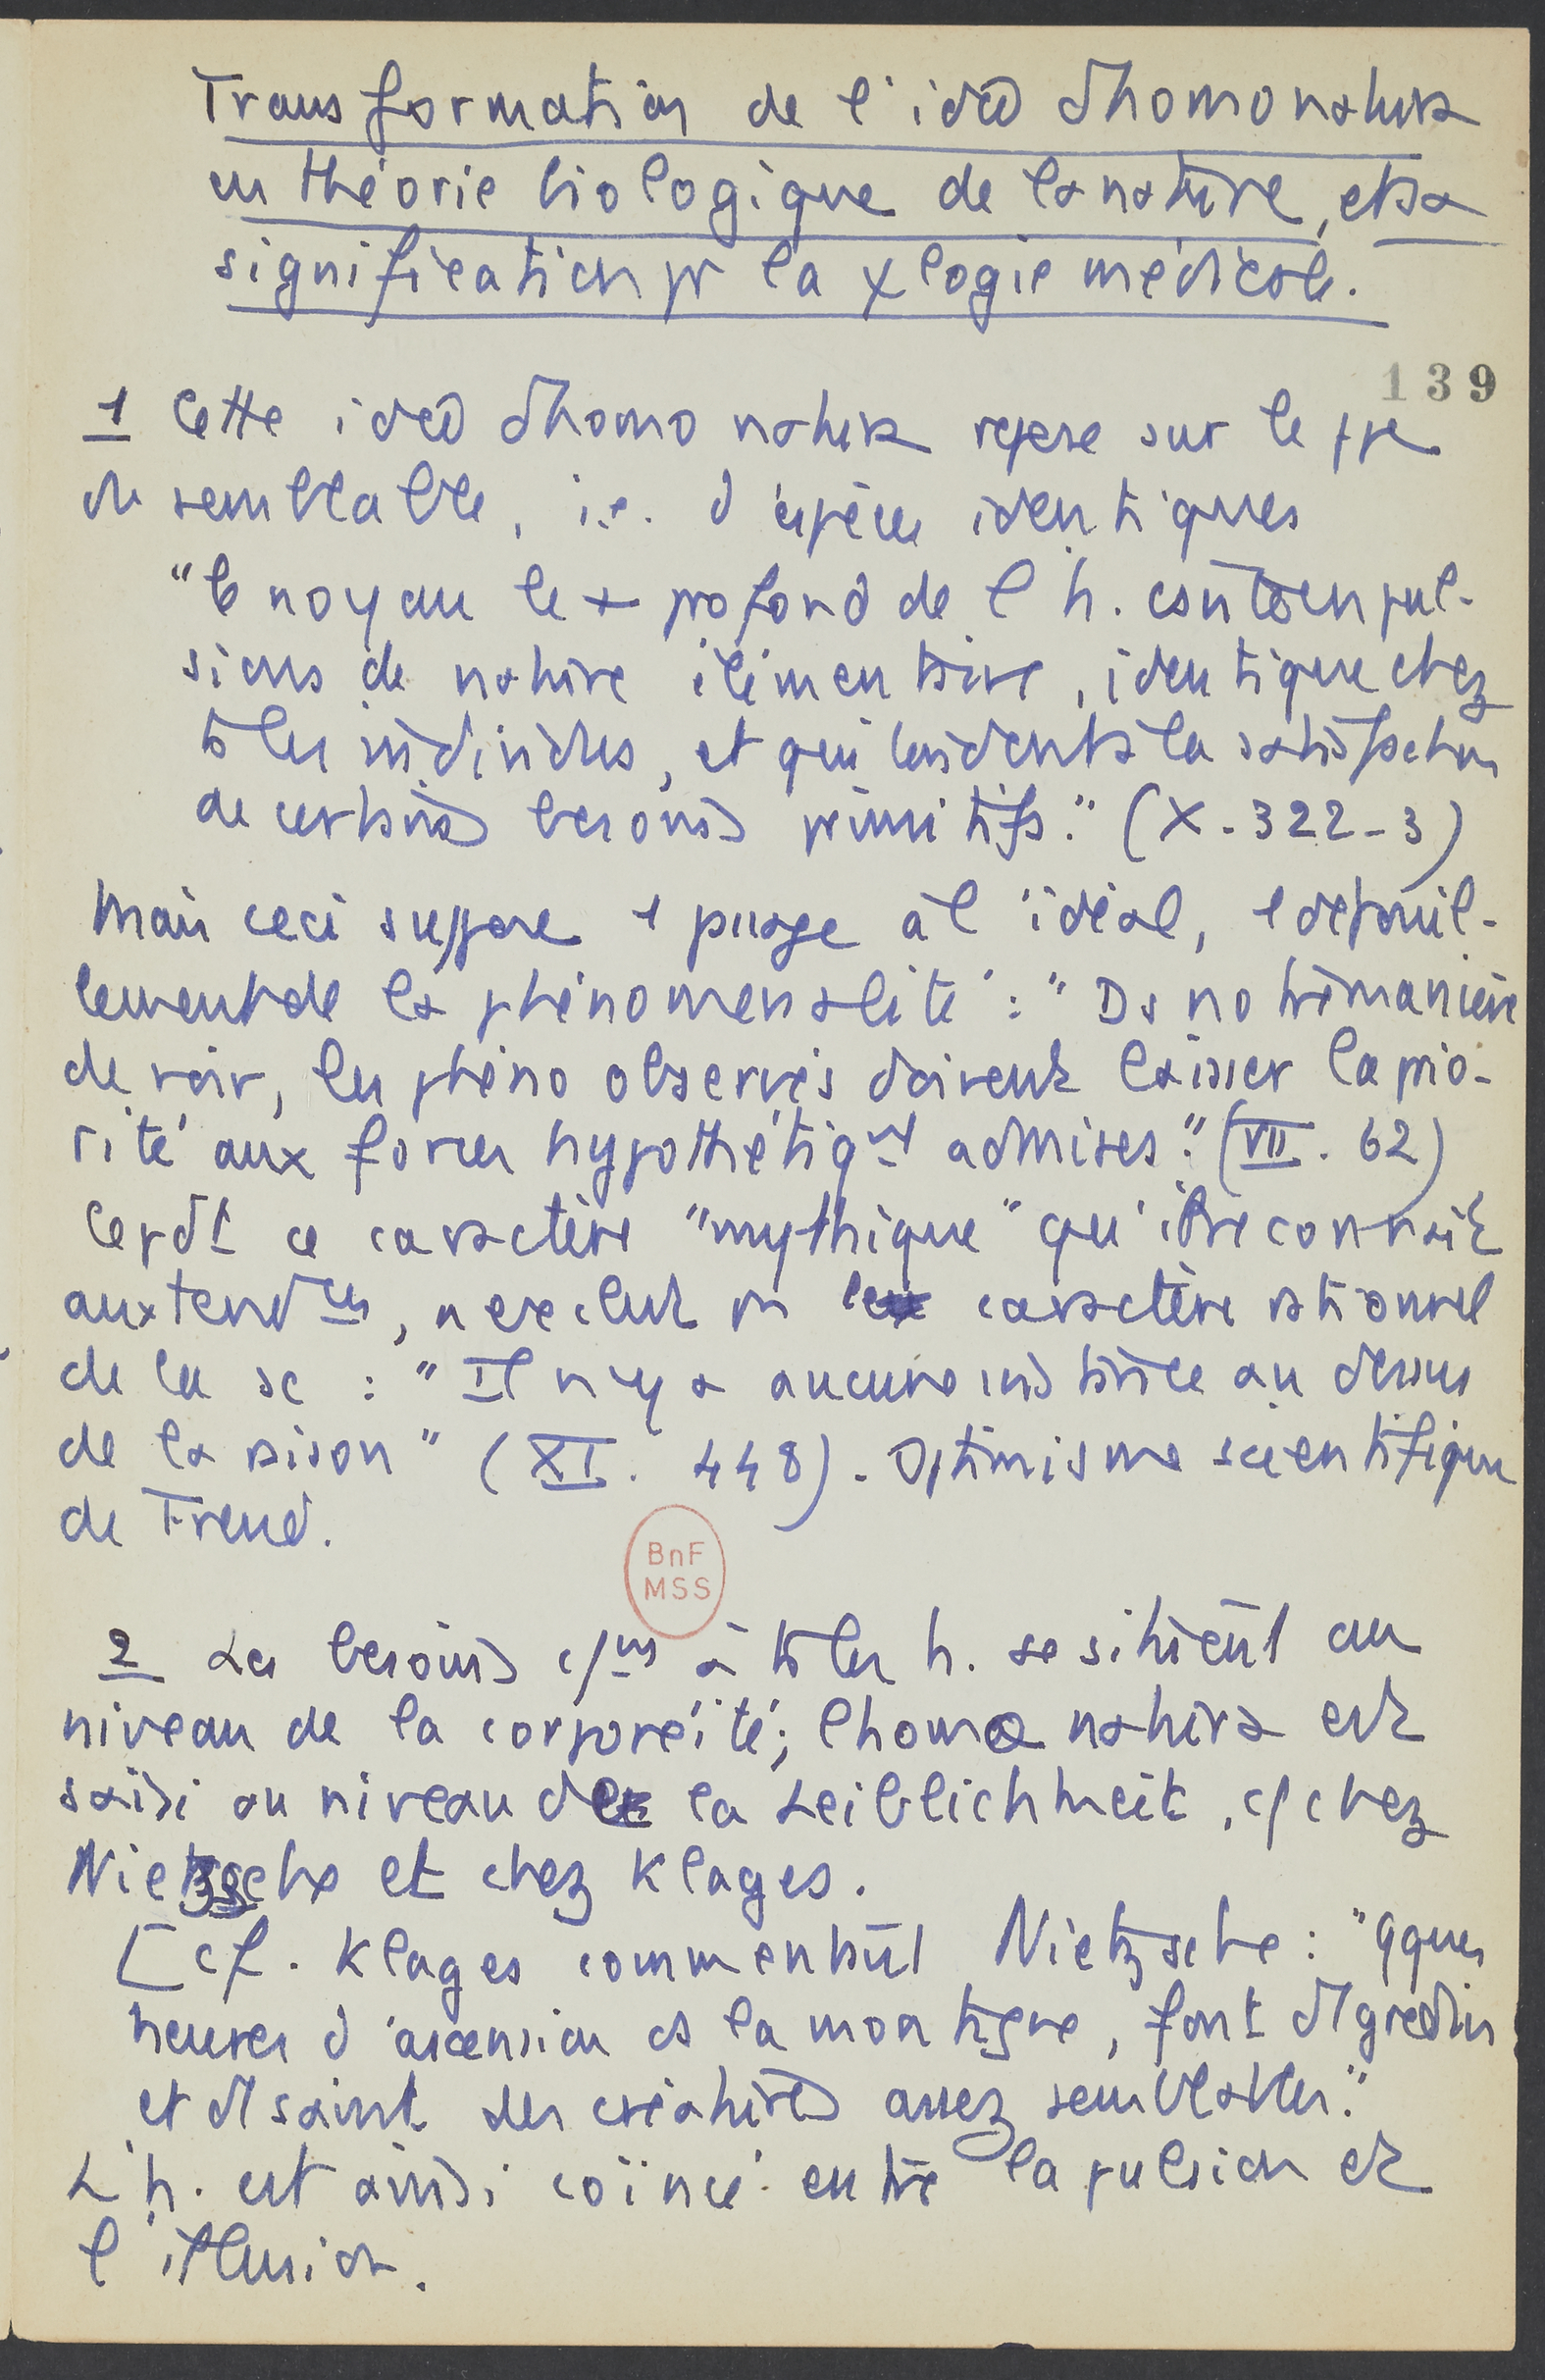 Transformation de l'idée d'homo natura
en théorie biologique de la nature, et sa
signification pr la χlogie médicale.
139
1 Cette idée d'homo natura repose sur le ppe
de semblable, i.e. d'espèces identiques
"le noyau le + profond de l'h. est en pul-
sions de nature élémentaire, identique chez
ts les individus, et qui tendent à la satisfaction
de certains besoins primitifs." (X-322-3)
Mais ceci suppose 1 passage à l'idéal, 1 dépouil-
lement de la phénoménalité : "Ds notre manière
de voir, les phéno observés doivent laisser la prio-
rité aux forces hypothétiqt admises." (VII. 62)
Cepdt ce caractère "mythique" qu'il reconnait
aux tendces, n'exclut pas le caractère rationnel
de la sc : "Il n'y a aucune instance au dessus
de la raison" (XI. 448). Optimisme scientifique
de Freud.
BnF
MSS
2 Les besoins c/ns à ts les h. se situent au
niveau de la corporéité; l'homo natura est
saisi au niveau de la Leiblichkeit, c/ chez
Nietzsche et chez Klages.
[cf. Klages commentant Nietzsche : "qques
heures d'ascension ds la montagne, font d'1 gredin
et d'1 saint des créatures assez semblables."
L'h. est ainsi coïncé entre la pulsion et
l'illusion.